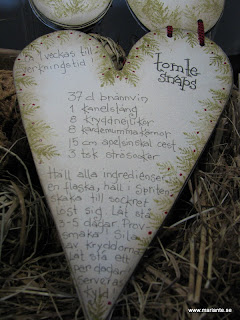 1 veckas till
erkningstid
tomte
snaps
37 cl brännvin
1 kanelstång
8 kryddnejlikor
8 kardemummakärnor
15 cm apelsinskal cest
3 tsk strösocker
Häll alla ingredienser i
en flaska, häll i spriten
skaka till sockret
löst sig. Låt stå
3-5 dagar. Prov
smaka. Sila
av kryddorn
Låt stå ett
par dagar
servera
kyld
www.mariante.se